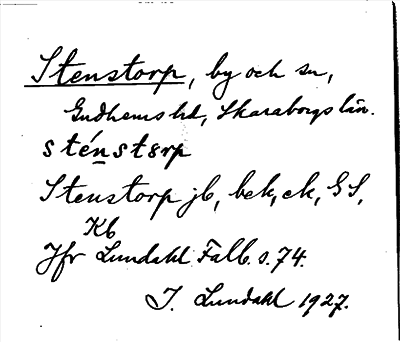 Stenstorp, by och sn,
Gudhems hd, Skaraborgs län.
sténstørp
Stenstorp jb, bek, ek, GS,
Kb
Jfr Lundahl Falb. s. 74.
I. Lundahl 1927.